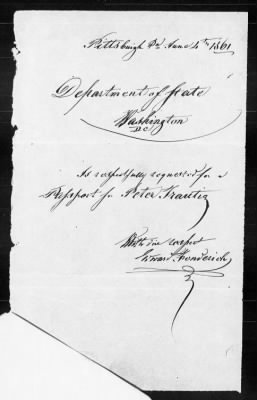 Pittsburgh Pa June 4th 1861
Department of State
Washington
DC
Is respectfully requested for a
Passport for Peter
With due respect
Edward